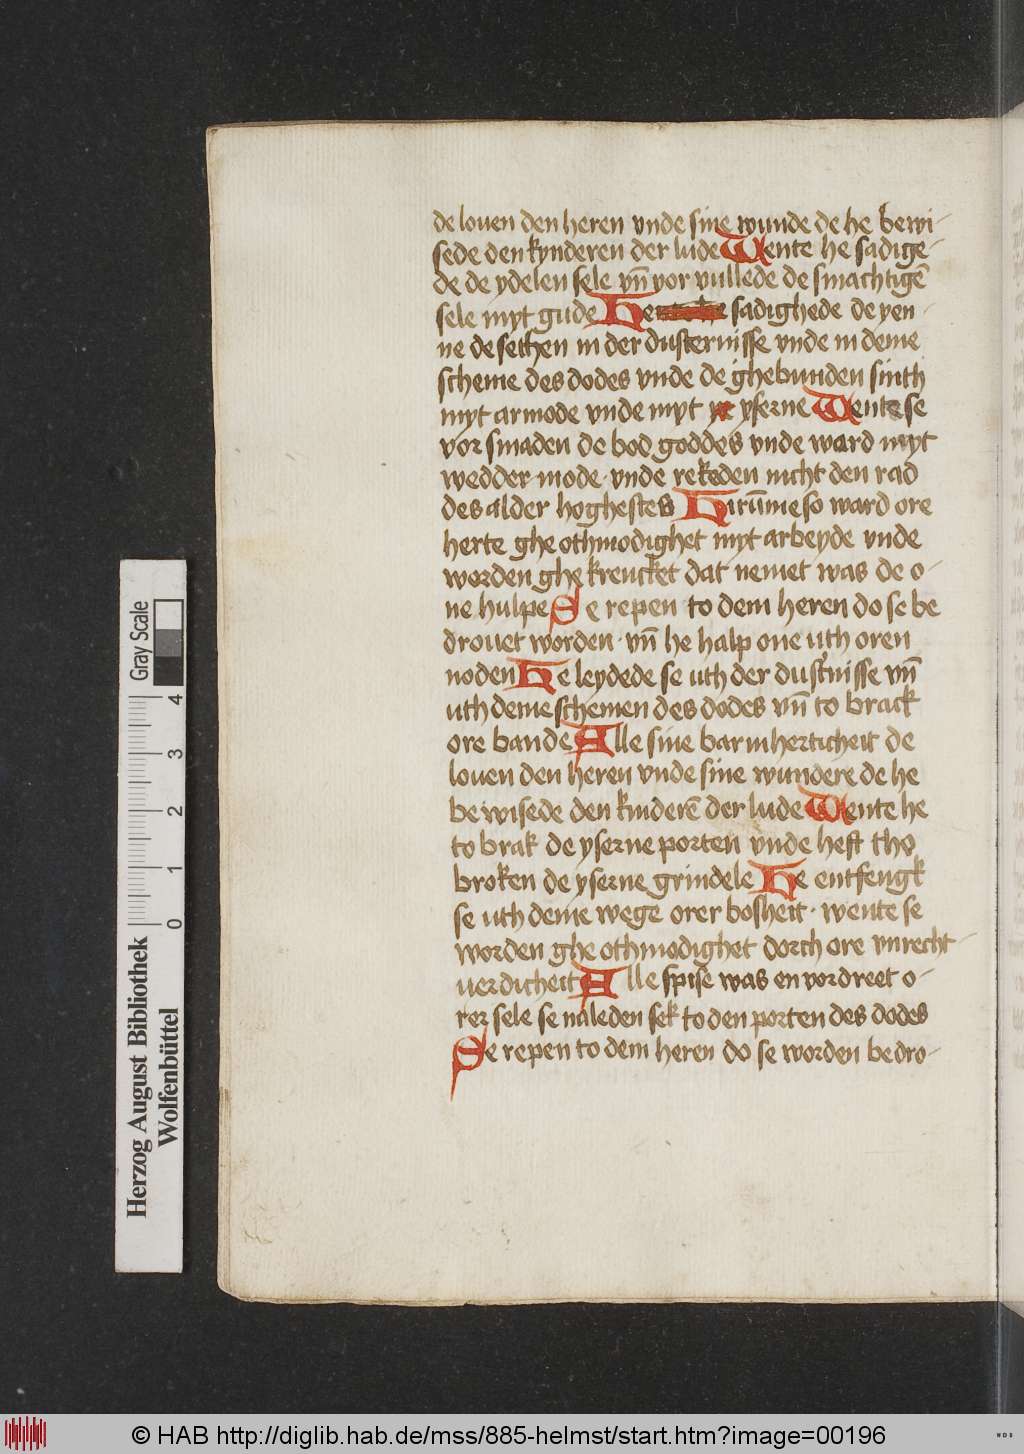 de louen den heren vnde sine wunde de he bewi-
sede den kynderen der lude Wente he sadige-
de de ydelen sele vn̄ vor vullede de smachtigē
sele myt gude He sadighede de yen-
ne de sethen in der dusternisse vnde in deme
scheme des dodes vnde de ghebunden sinth
myt armode vnde myt yserne Wente se
vor smaden de bod goddes vnde ward myt
wedder mode vnde rekeden nicht den rad
des alder hoghesten Hirūme so ward ore
herte ghe othmodighet myt arbeyde vnde
worden ghe krencket dat nemet was de o-
ne hulpe Se repen to dem heren do se be
drouet worden · vn̄ he halp one vth oren
noden He leydede se uth der dusťnisse vn̄
uth deme schemen des dodes vn̄ to brack
ore bande Alle sine barmherticheit de
louen den heren vnde sine wundere de he
be wisede den kinderē der lude Wente he
to brak de yserne porten vnde heft tho
broken de yserne grindele He entfengk
se uth deme wege orer bosheit · wente se
worden ghe othmodighet dorch ore vnrecht-
uerdicheit Alle spise was en vordreet o-
rer sele se naleden sek to den porten des dodes
Se repen to dem heren do se worden bedro-
Gray Scale
4
3
2
1
0
Herzog August Bibliothek
Wolfenbüttel
© HAB http://diglib.hab.de/mss/885-helmst/start.htm?image=00196
WDB